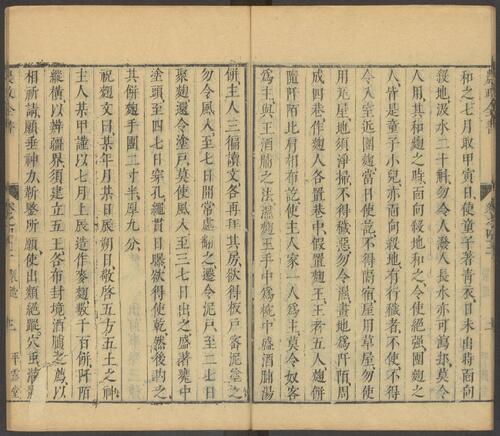 和之七月取甲寅日使童子著青衣日未出時面向
殺地汲水二十斛勿令人潑人長水亦可瀉却莫令
人用其和麴之時面向殺地和之令使絶强團麴之
人皆是童子小兒亦面向殺地有行穢者不使不得
令入室近團麴當日使訖不得隔宿屋用草屋勿使
用瓦屋地須淨掃不得穢惡勿令濕畫地爲阡陌周
成四巷作麴人各置巷中假置麴王王者五人麴餅
隨阡陌比肩相布訖使主人家一人爲主莫令奴客
爲主與王酒脯之法濕麴王手中爲椀中盛酒脯湯
餅主人三徧讀文各再拜其房欲得板戸密泥塗之
勿令風入至七日開當處翻之還令泥戸至二七日
聚麴還令塗戸莫使風入至三七日出之盛著甕中
塗頭至四七日穿孔繩貫日曝欲得使乾然後内之
其餅麴手團二寸半厚九分
祝麴文曰某年月某日辰朔日敬啓五方五土之神
主人某甲謹以七月上辰造作麥麴數千百餅阡陌
縱横以辨疆界須建立五王各布封境酒脯之薦以
相祈請願垂神力鑒所願使出類絶蹤穴虫潛影
農政全書
卷之四十二
製造
平露堂